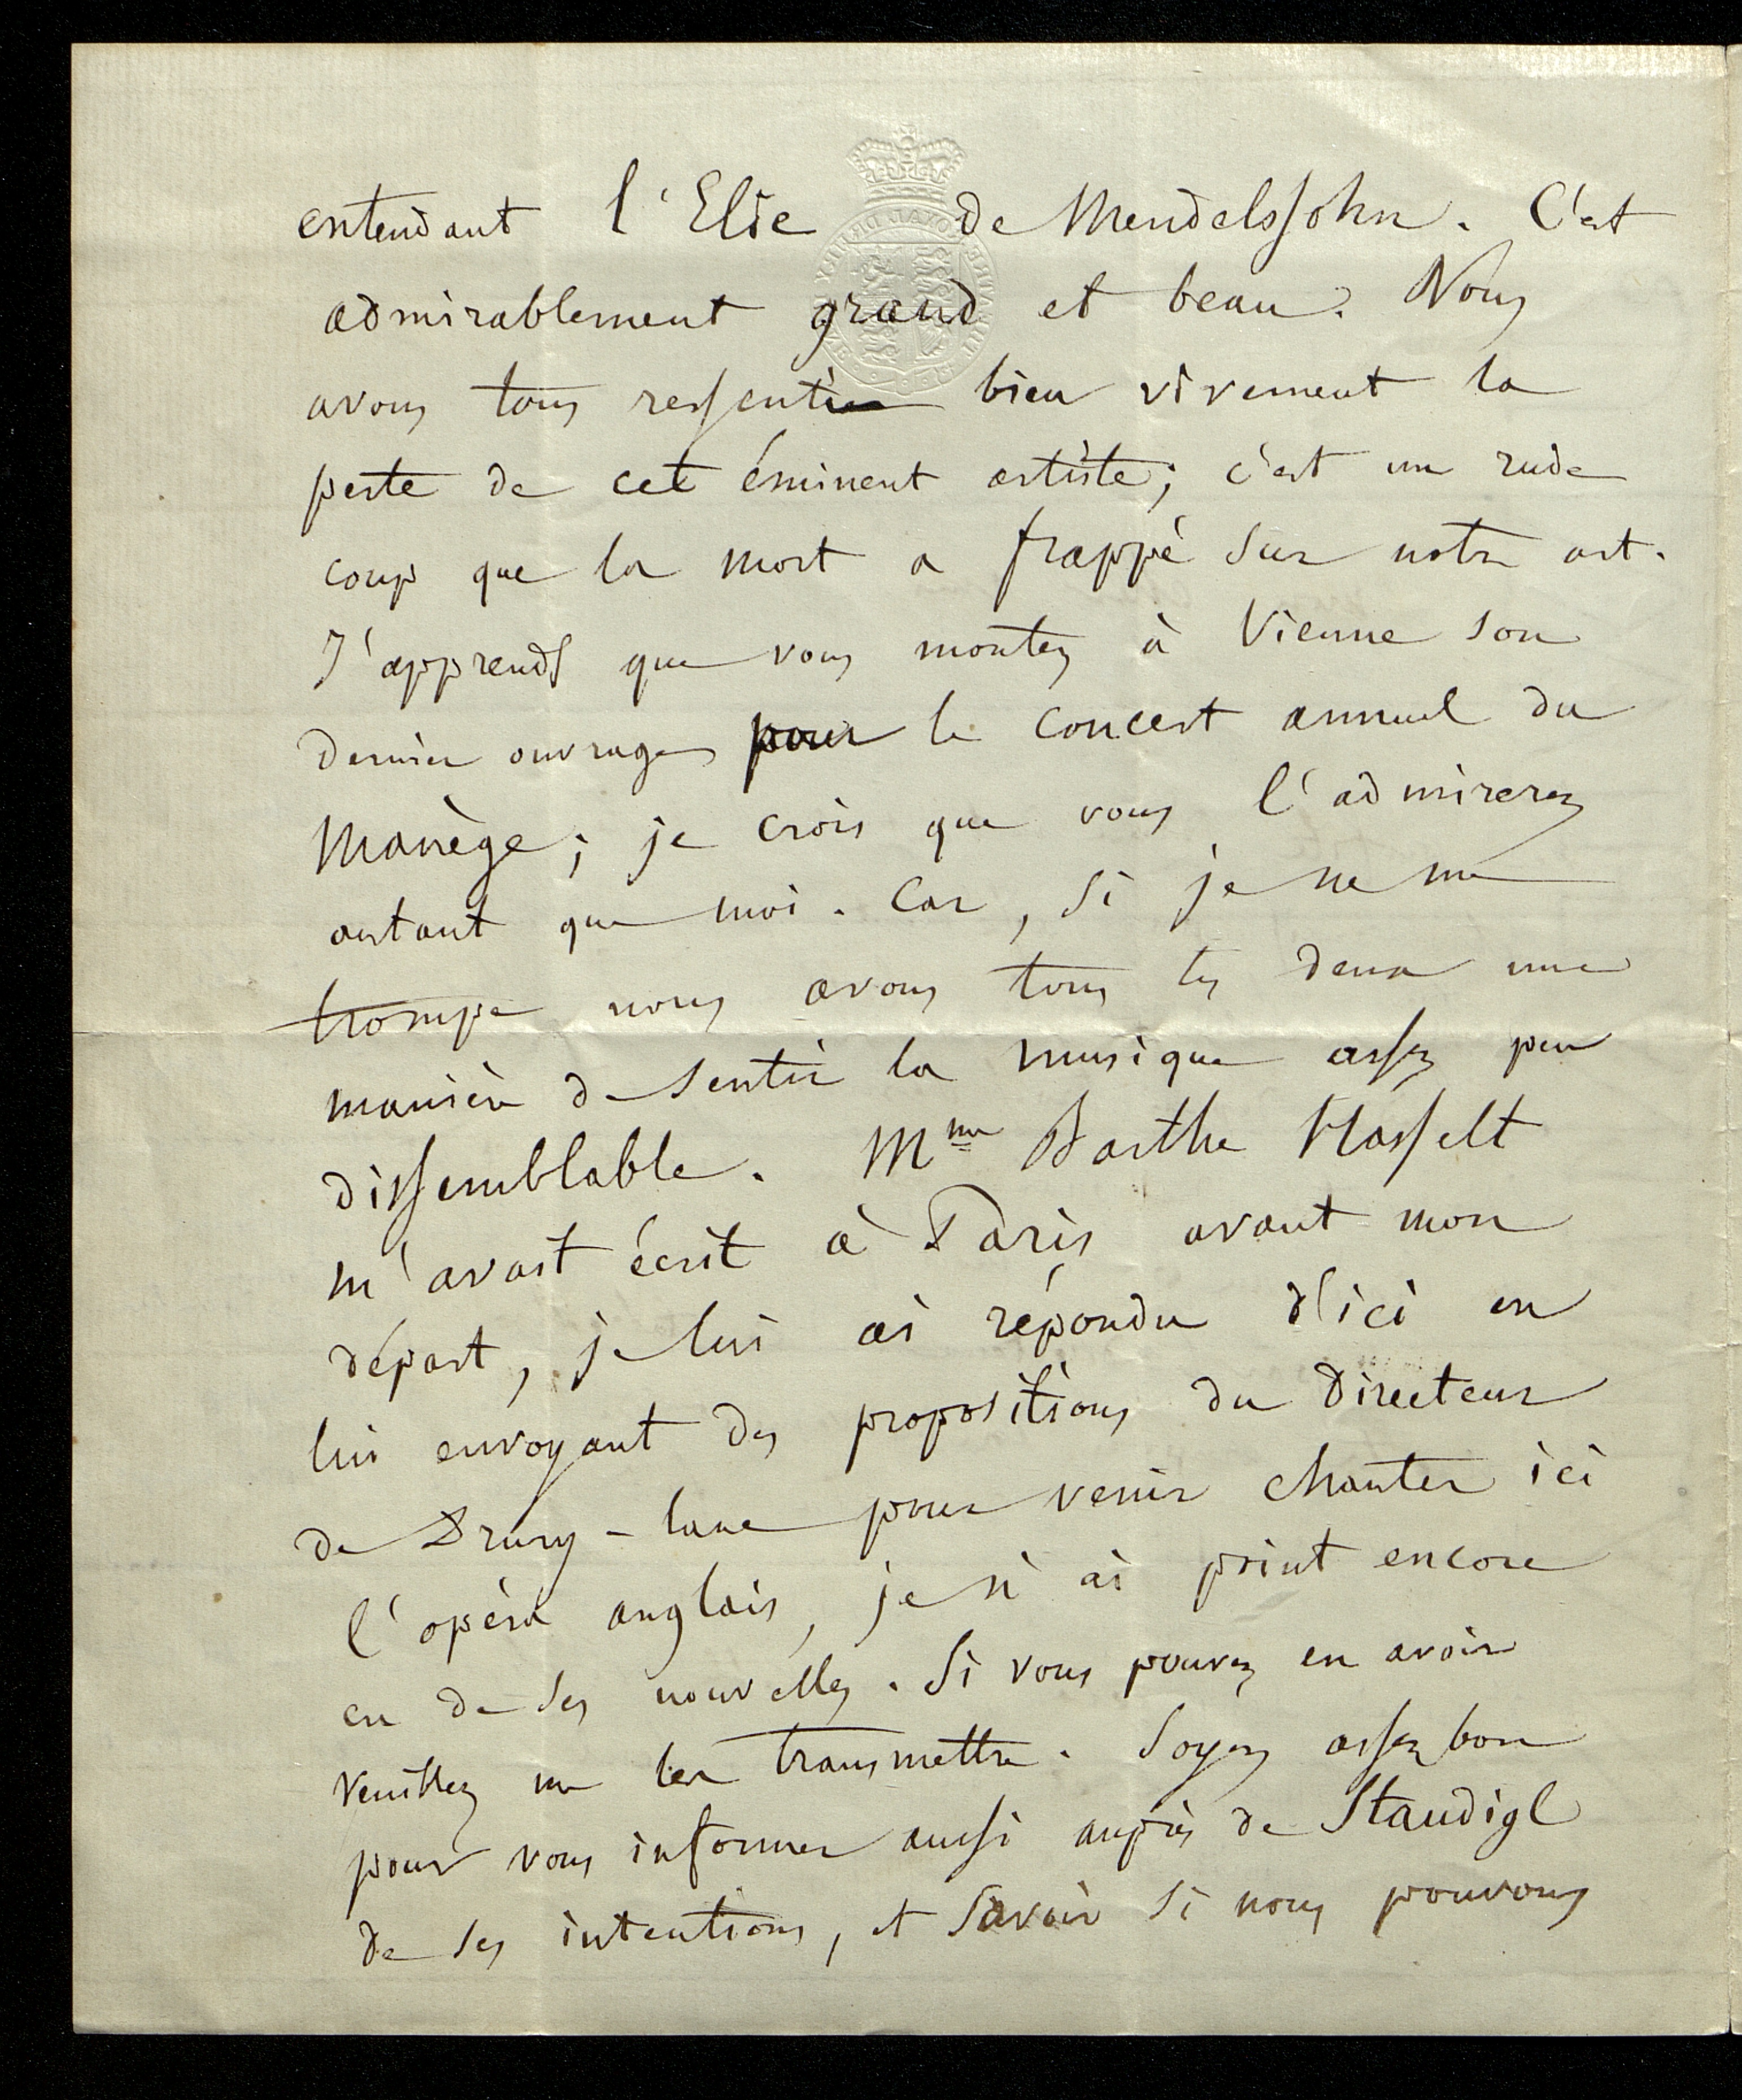 entendant l'Elie de Mendelssohn. C'est
admirablement grand et beau. Nous
avons tous ressenti bien vivement la
perte de cet éminent artiste; c'est un rude
coup que la mort a frappé sur notre art.
J'apprends que vous montez à Vienne son
dernier ouvrage pour le concert annuel du
Manège; je crois que vous l'admirerez
autant que moi. Car, si je ne me
trompe nous avons tous les deux une
manière de sentir la musique assez peu
dissemblable. Mme Barthe Hasselt
m'avait écrit à Paris avant mon
départ, je lui ai répondu d'ici en
lui envoyant des propositions du Directeur
de Drury-lane pour venir chanter ici
l'opéra anglais, je n'ai point encore
eu de ses nouvelles. Si vous pouvez en avoir
veuillez me les transmettre. Soyez assez bon
pour vous informer aussi auprès de Staudigl
de ses intentions, et savoir si nous pouvons